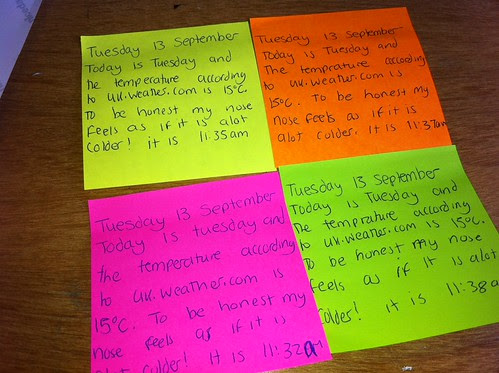 Tuesday 13 September
Today is Tuesday and
the temperature according
to uk.weather.com is 15°C.
To be honest my nose
feels as if it is alot
colder! it is 11:35am
Tuesday 13 September
Today is Tuesday and
The temprature according
to uk.weather.com is
15°C. To be honest my
nose feels as if it is
alot colder. It is 11:37am
Tuesday 13 September
Today is tuesday and
the temperature according
to uk.weather.com is
15°C. To be honest my
nose feels as if it is
alot colder! It is 11:32am
Tuesday 13 September
Today is Tuesday and
the temprature according
to uk.weather.com is 15°C.
To be honest my nose
feels as if it is alot
colder! it is 11:38a